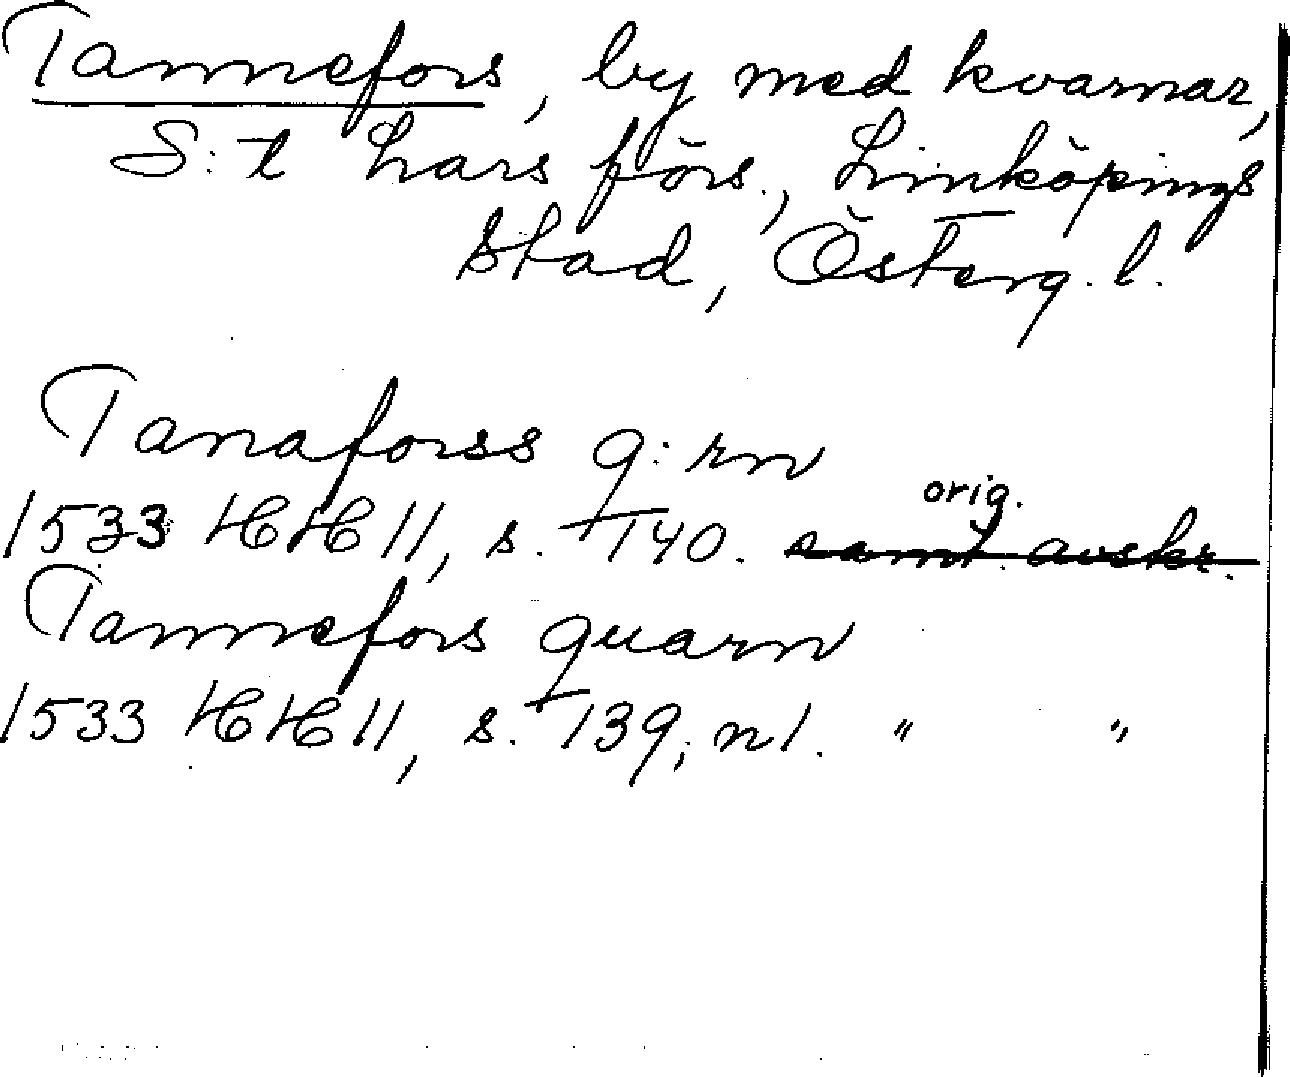 Tannefors, by med kvarnar,
S:t Lars förs., Linköpings
stad, Österg. l.
Tanaforss q:rn
orig.
1533 HH 11, s. 140. samt. avskr.
Tannefors quarn
1533 HH 11, s. 139, n 1. " "